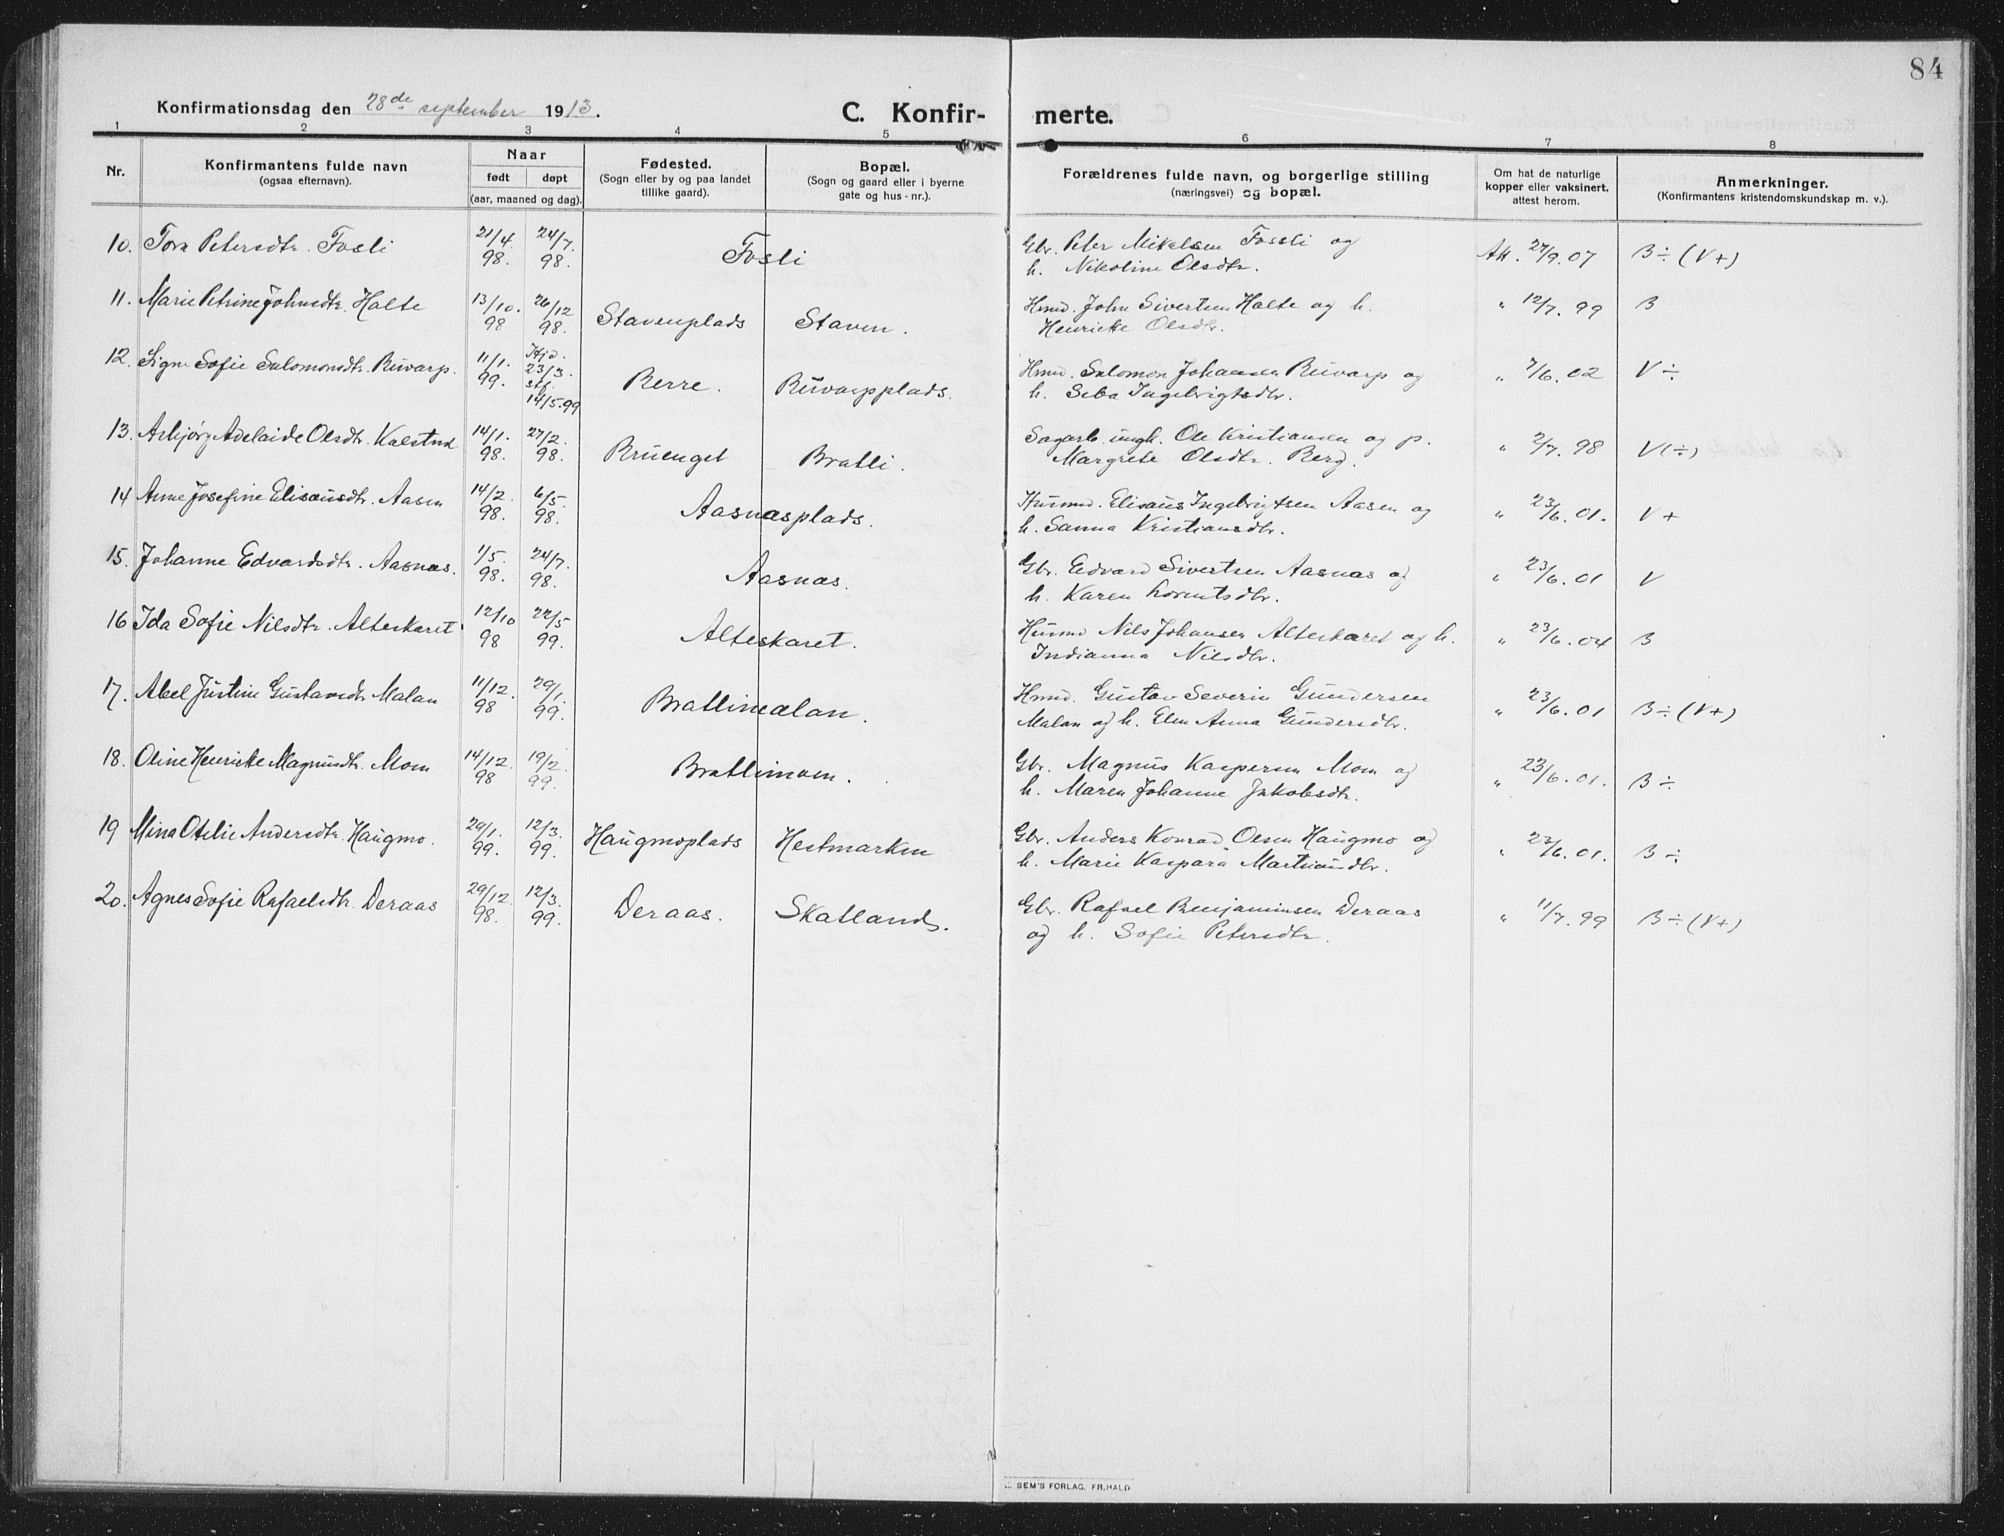 84
Konfirmationsdag den 28de september 1913.
C. Konfir-
merte.
1 2 3 4 5 6 7 8
Nr.
Konfirmantens fulde navn
(ogsaa efternavn).
Naar
født døpt
(aar, maaned og dag).
Fødested.
(Sogn eller by og paa landet
tillike gaard).
Bopæl.
(Sogn og gaard eller i byerne
gate og hus-nr.).
Forældrenes fulde navn, og borgerlige stilling
(næringsvei) og bopæl.
Om hat de naturlige
kopper eller vaksinert.
attest herom.
Anmerkninger.
(Konfirmantens kristendomskundskap m. v.).
10. Tora Petersdtr. Fosli 21/4. 98. 24/7. 98. Fosli Gbr. Peter Mikelsen Fossli og Att. 27/9.07 B÷(V+)
h. Nikoline Olsdtr.
11. Marie Petrine Johnsdtr. Halte 13/10. 98 26/12 98. Stavenplads Staven. Hmd. John Sivertsen Halte og h. " 12/7. 99 B
Henricke Olsdtr.
12. Signe Sofie Salomonsdtr. Ruvarp. 11/1. 99. Hjd. 23/3. stf. 14/5.99 Rerre. Ruvarpplads. Hmd. Salomon Johansen Ruvarp og " 7/6. 02 V÷
h. Seba Ingebrigtsdtr.
13. Asbjørg Adelaide Olsdtr. Kalstad 14/1. 98. 27/2. 98. Bruenget Bratli. Sagarb. ungk. Ole Kristiansen og p. " 2/7. 98 V(÷)
Margrete Olsdtr. Berg.
14 Anne Josefine Elisæusdtr. Aasen 14/2. 98. 6/5. 98. Aasnasplads. Husmd. Elisæus Ingebrigtsen Aasen og " 23/6.01. V+
h. Sanna Kristiansdtr.
15. Johanne Edvardsdtr. Aasnas. 1/5. 98. 24/7. 98. Aasnas. Gbr. Edvard Sivertsen Aasnas og " 23/6.01 V
h. Karen Lorentsdtr.
16 Ida Sofie Nilsdtr. Alteskaret 12/10 98 22/5 99. Alteskaret. Husmd Nils Johansen Alteskaret og h. " 23/6.04 B
Indianna Nilsdtr.
17. Abel Justine Gustavsdtr Malan 11/12. 98 29/1. 99. Bratlimalan. Hmd. Gustav Severin Gundersen
Malan og h. Elen Anna Gundersdtr. " 23/6.01 B÷(V+)
18. Oline Henricke Magnusdtr. Mom 14/12. 98 19/2. 99. Bratlimom. Gbr. Magnus Kaspersen Mom og " 23/6.01. B÷
h. Maren Johanne Jakobsdtr.
19 Mina Otelie Andersdtr. Haugmo. 29/1. 99. 12/3. 99. Haugmoplads Hestmarken Gbr. Anders Konrad Olsen Haugmo og " 23/6.01. B÷
h. Marie Kaspara Martinusdtr.
20. Agnes Sofie Rafaelsdtr. Deraas 29/12. 98. 12/3. 99. Deraas. Skatland. Gbr. Rafael Benjaminsen Deraas " 11/7.99 B÷(V+)
og h. Sofie Petersdtr.
SEM'S FORLAG, FR.HALD